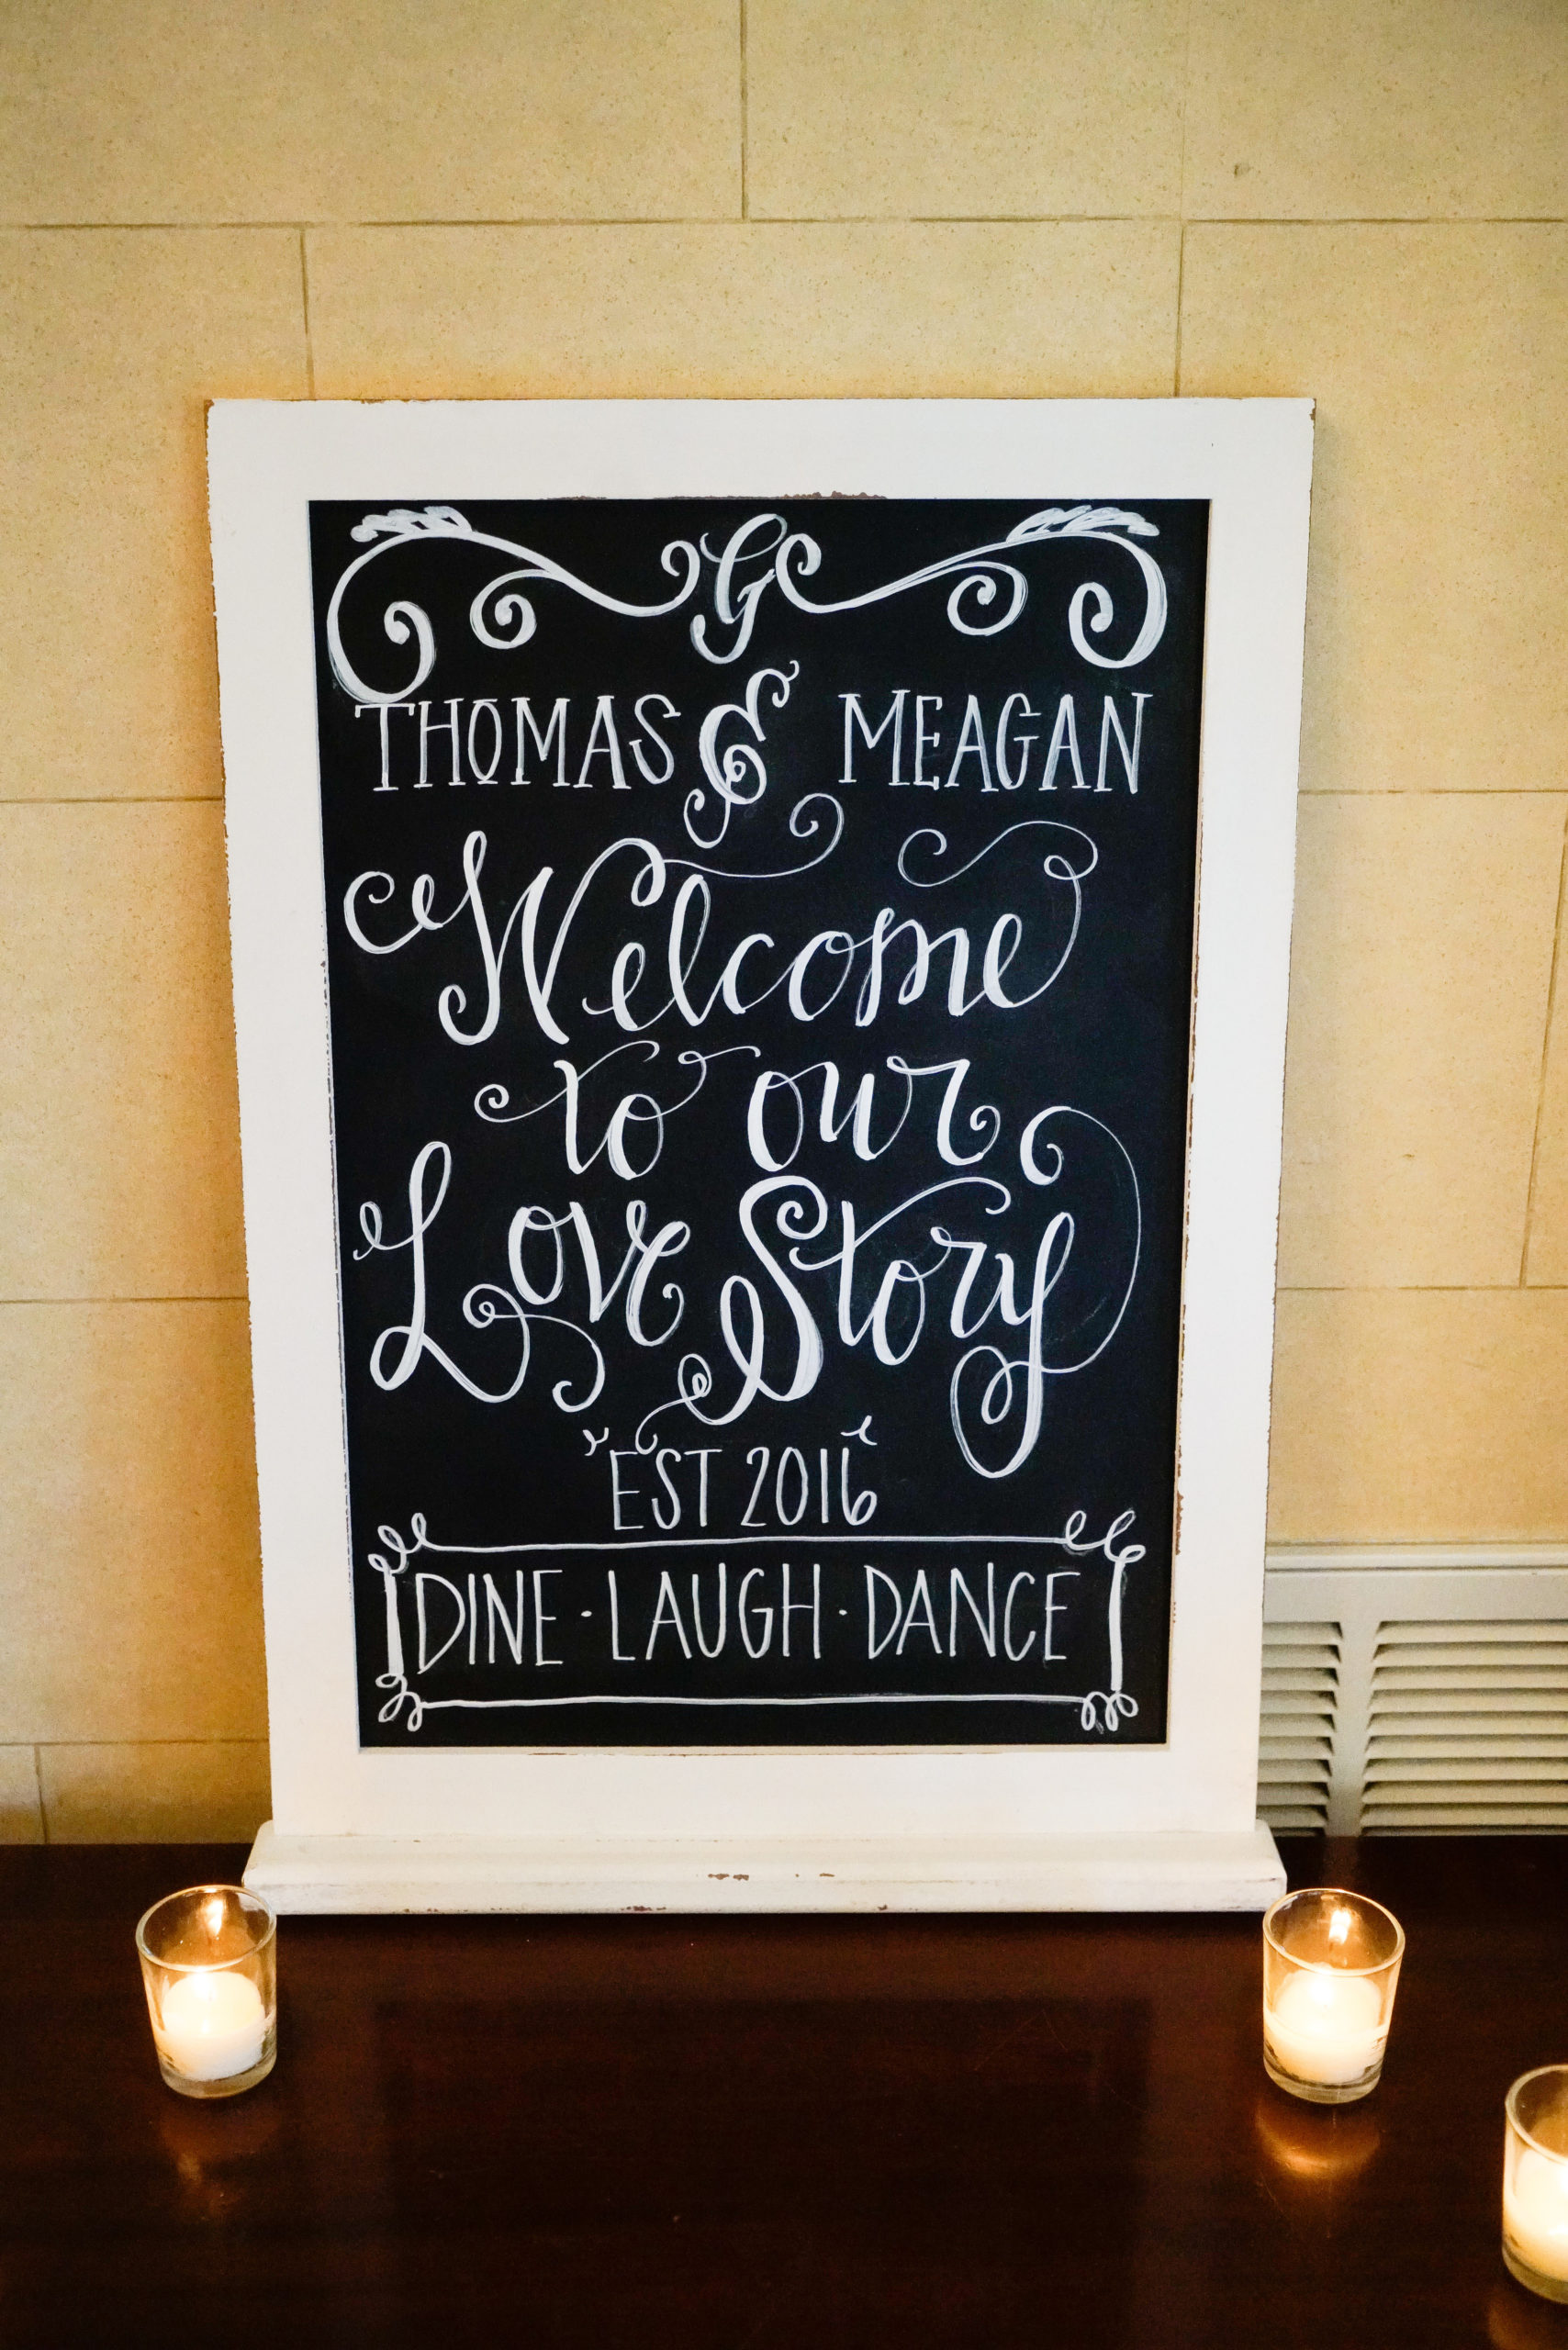 G
THOMAS & MEAGAN
Welcome
to our
Love Story
EST 2016
DINE · LAUGH · DANCE